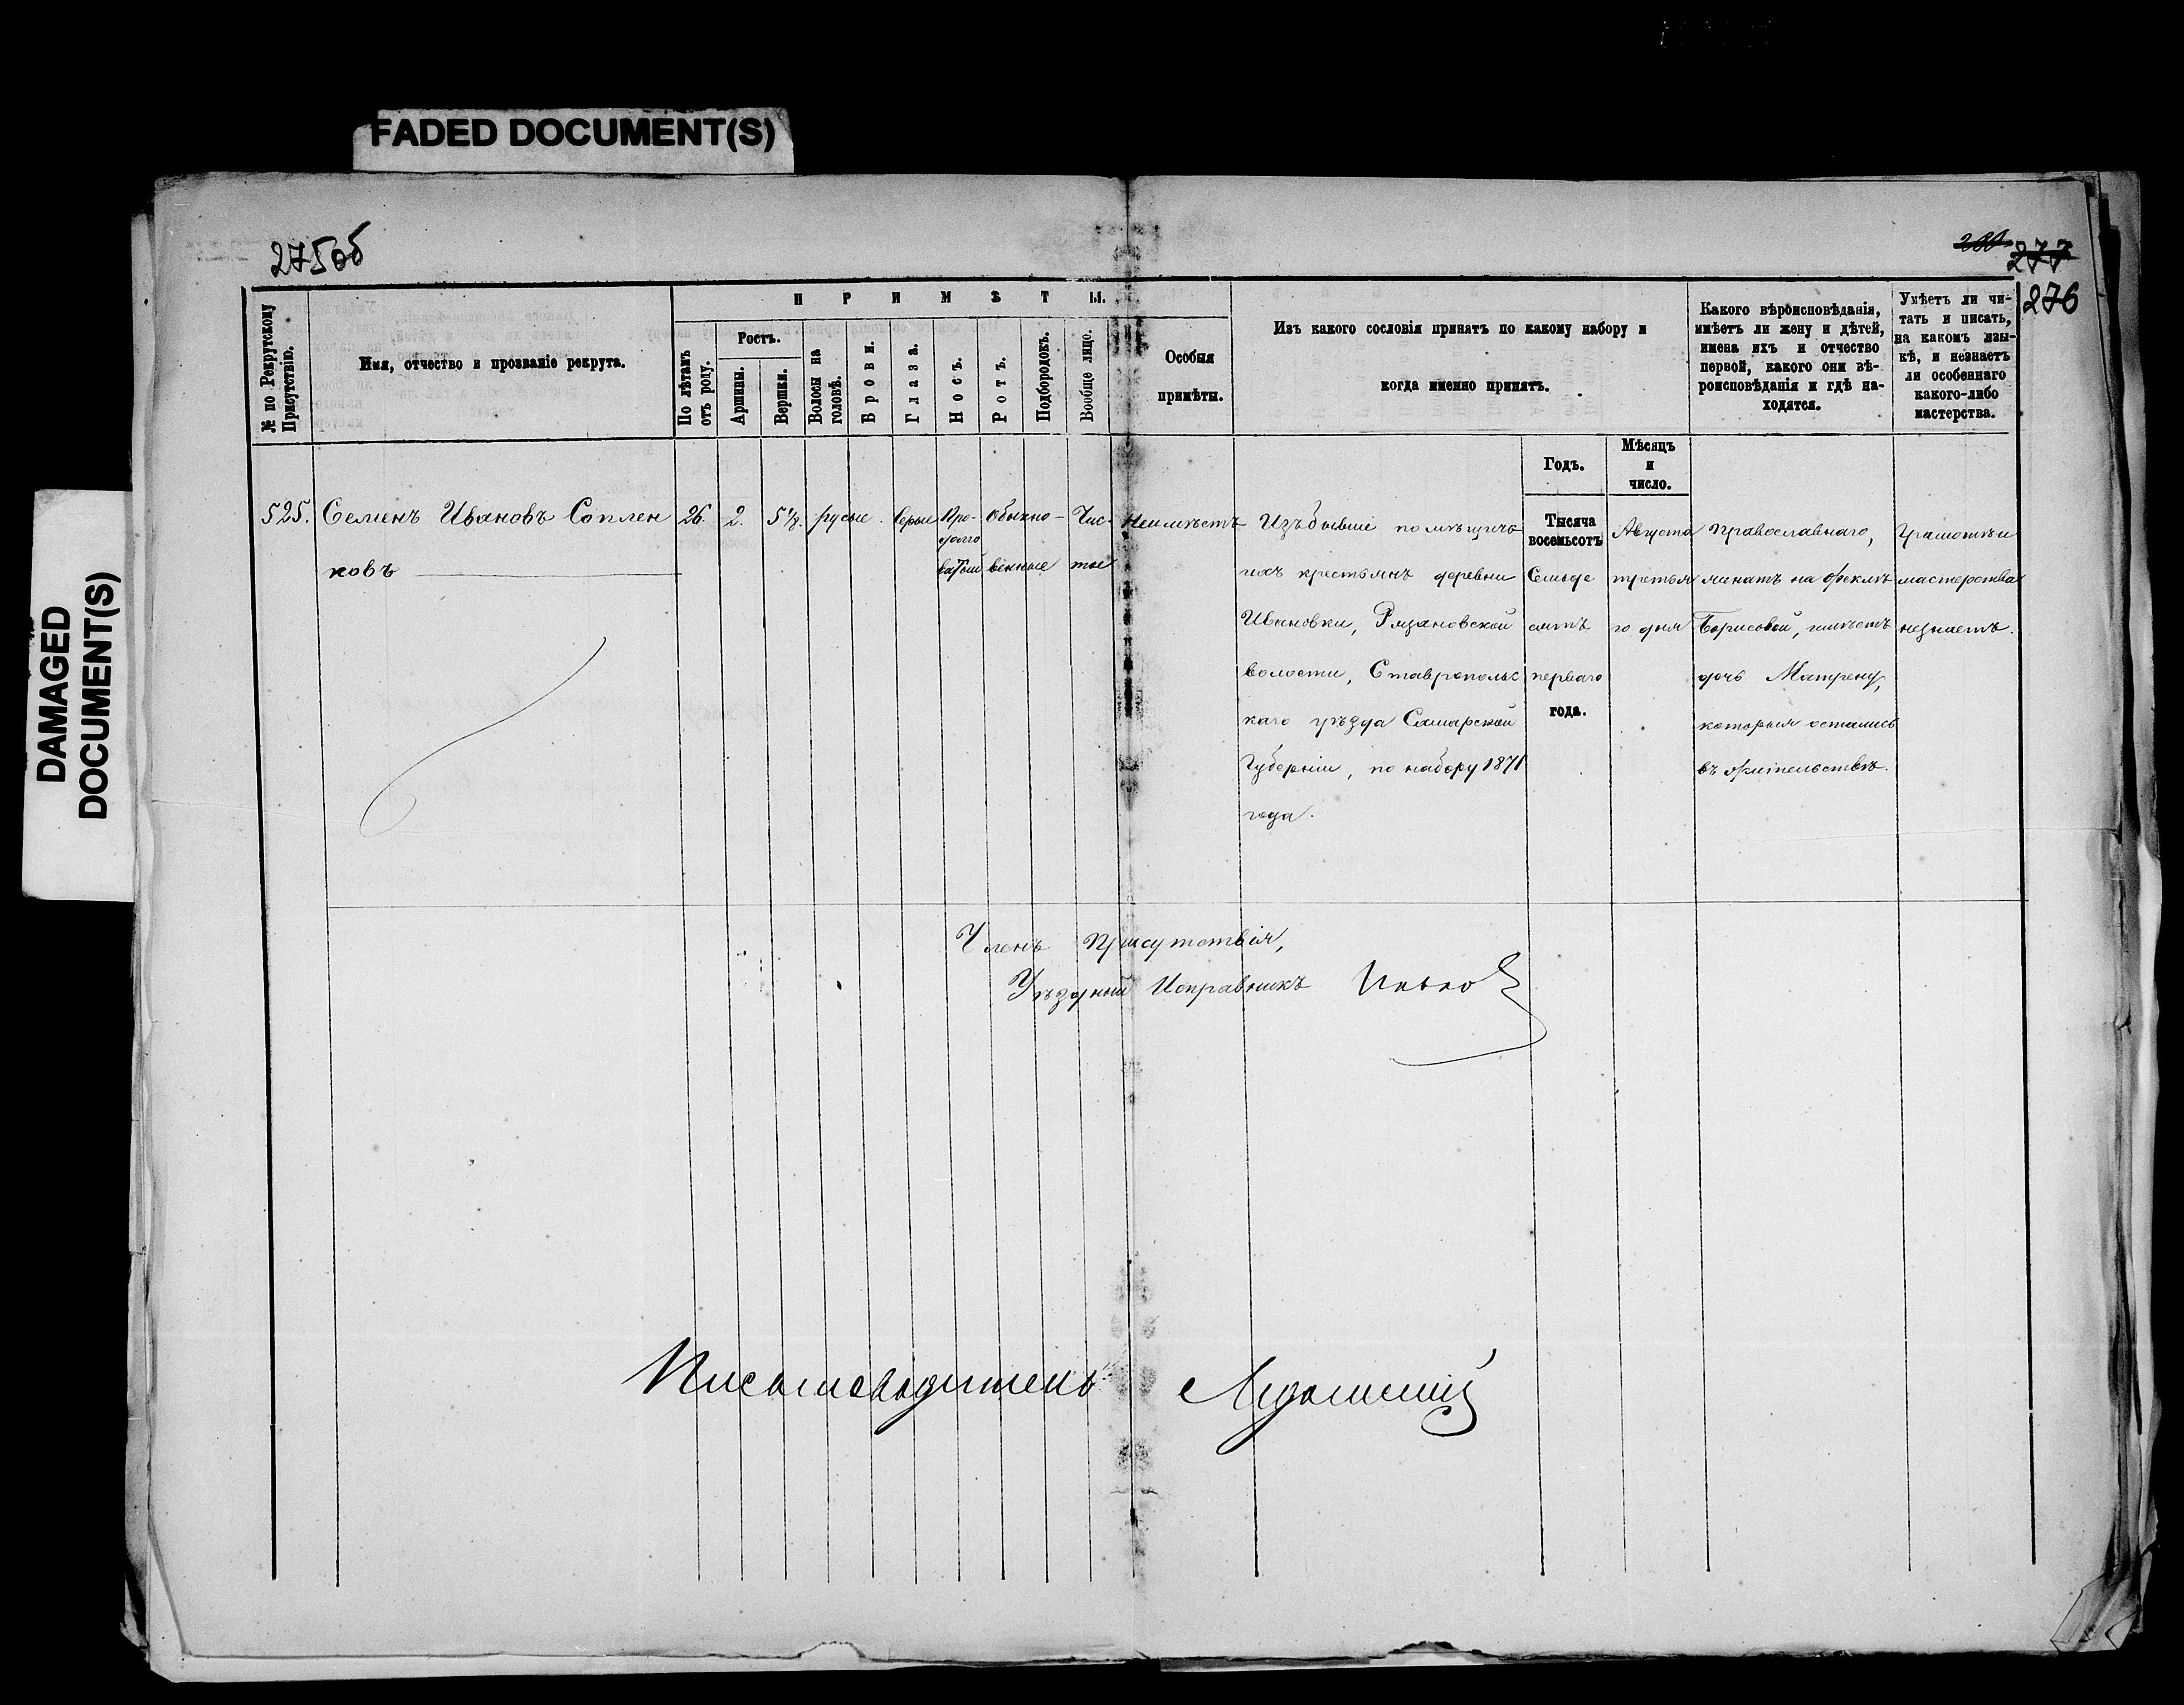 FADED DOCUMENT(S)
DAMAGED
DOCUMENT(S)
275об
277
276
№ по Рекрутскому Присутствію.
Имя, отчество и прозваніе рекрута.
ПРИМѢТЫ.
По лѣтамъ отъ роду.
Ростъ.
Аршины.
Вершки.
Волосы на головѣ.
Брови.
Глаза.
Носъ.
Ротъ.
Подбородокъ.
Вообще лицо.
Особыя
примѣты.
Изъ какого сословія принятъ по какому набору и
когда именно принятъ.
Какого вѣроисповѣданія,
имѣетъ ли жену и дѣтей,
имена ихъ и отчество
первой, какого они вѣ-
роисповѣданія и гдѣ на-
ходятся.
Умѣетъ ли чи-
тать и писать,
на какомъ язы-
кѣ, и незнаетъ
ли особеннаго
какого-либо
мастерства.
Годъ.
Мѣсяцъ
и
число.
525.
Семенъ Ивановъ Соплен
ковъ
26.
2.
5⅛.
русые.
Серые
Про-
долго
ватый
Обыкно-
венные
Чис-
тое
Неимѣетъ
Изъ бывшіе помѣщичь
ихъ крестьянъ деревни
Ивановки, Рязановской
волости, Ставропольс
каго уѣзда Самарской
Губерніи, по набору 1871
года.
Тысяча
восемьсотъ
Семьде
сятъ
перваго
года.
Августа
третья
го дня
Православнаго,
женатъ на Феклѣ
Борисовой, имѣетъ
дочь Матрену,
которыя остались
въ жительствѣ.
Грамотѣ и
мастерства
незнаетъ.
Членъ Присутствія,
Уѣздный Исправникъ
Письмоводитель